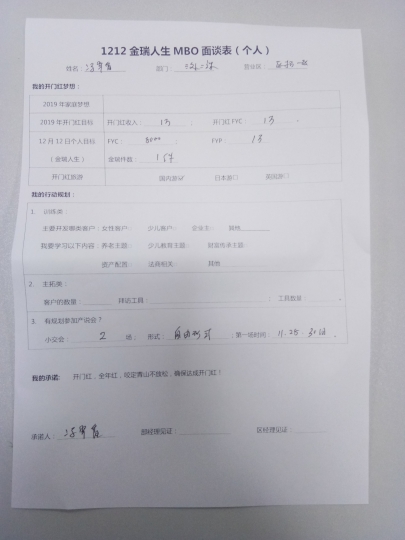 1212 金瑞人生 MBO 面谈表（个人）
姓名： 部门： 营业区：
我的开门红梦想：
2019 年家庭梦想
2019 年开门红目标 开门红收入：13 开门红 FYC：13
12 月 12 日个人目标 FYC：8000 FYP：
（金瑞人生） 金瑞件数：1件
开门红旅游 国内游□ 日本游□ 英国游□
我的行动规划：
1. 训练类：
主要开发哪类客户：女性客户： 少儿客户： 企业主： 其他
我要学习以下内容：养老主题： 少儿教育主题： 财富传承主题：
资产配置： 法商相关： 其他
2. 主拓类：
客户的数量： 拜访工具： ；工具数量：
3. 有规划参加产说会？
小交会： 2 场； 形式： ；第一场时间：11.25-30日.
我的承诺： 开门红，全年红，咬定青山不放松，确保达成开门红！
承诺人： 部经理见证： 区经理见证：